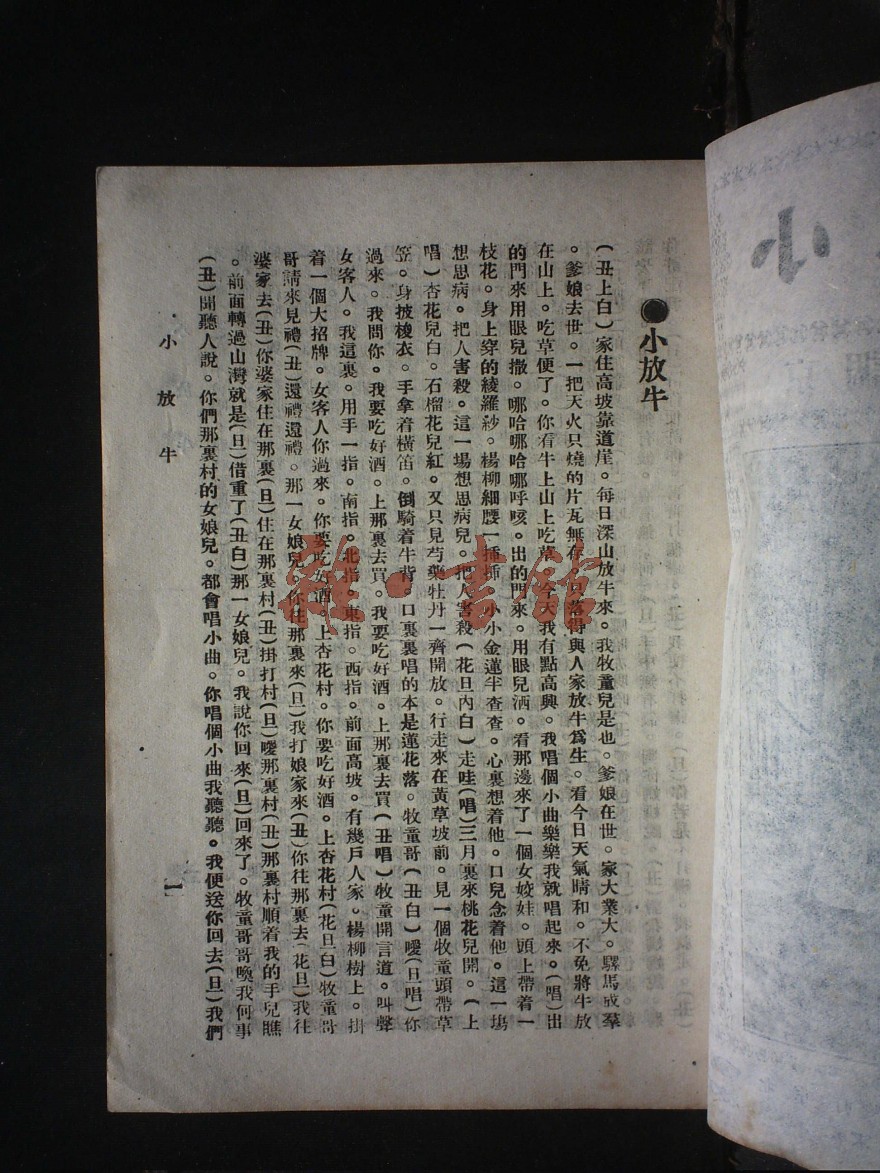 ●小放牛
(丑上白)家住高坡靠道崖。每日深山放牛來。我牧童兒是也。爹娘在世。家大業大。騾馬成羣
。爹娘去世。一把天火只燒的片瓦無存。只落得與人家放牛爲生。看今日天氣晴和。不免將牛放
在山上。吃草便了。你看牛上山上吃草。今天我有點高興。我唱個小曲樂樂我就唱起來。(唱)出
的門來用眼兒撒。哪哈哪哈哪呼咳。出的門來。用眼兒洒。看那邊來了一個女姣娃。頭上帶着一
枝花。身上穿的綾羅紗。楊柳細腰一插插。小小金蓮半查查。心裏想着他。口兒念着他。這一塲
想思病。把人害殺。這一塲想思病兒。把人害殺(花旦內白)走哇(唱)三月裏來桃花兒開。(上
唱)杏花兒白。石榴花兒紅。又只見芍藥牡丹一齊開放。行走來在黃草坡前。見一個牧童頭帶草
笠。身披梭衣。手拿着橫笛。倒騎着牛背。口裏裏唱的本是蓮花落。牧童哥(丑白)噯(旦唱)你
過來。我問你。我要吃好酒。上那裏去買。我要吃好酒。上那裏去買(丑唱)牧童開言道。叫聲
女客人。我這裏。用手一指。南指。北指。東指。西指。前面高坡。有幾戶人家。楊柳樹上。掛
着一個大招牌。女客人你過來。你要吃好酒。上杏花村。你要吃好酒。上杏花村(花旦白)牧童哥
哥請來見禮(丑)還禮還禮。那一女娘兒。你往那裏來(旦)我打娘家來(丑)你往那裏去(花旦)我往
婆家去(丑)你婆家住在那裏(旦)住在那裏村(丑)掛打村(旦)噯那裏村(丑)那裏村順着我的手兒瞧
。前面轉過山灣就是(旦)借重了(丑白)那一女娘兒。我說你回來(旦)回來了。牧童哥哥喚我何事
(丑)聞聽人說。你們那裏村的女娘兒。都會唱小曲。你唱個小曲我聽聽。我便送你回去(旦)我們
小放牛
一
雜·書館
小